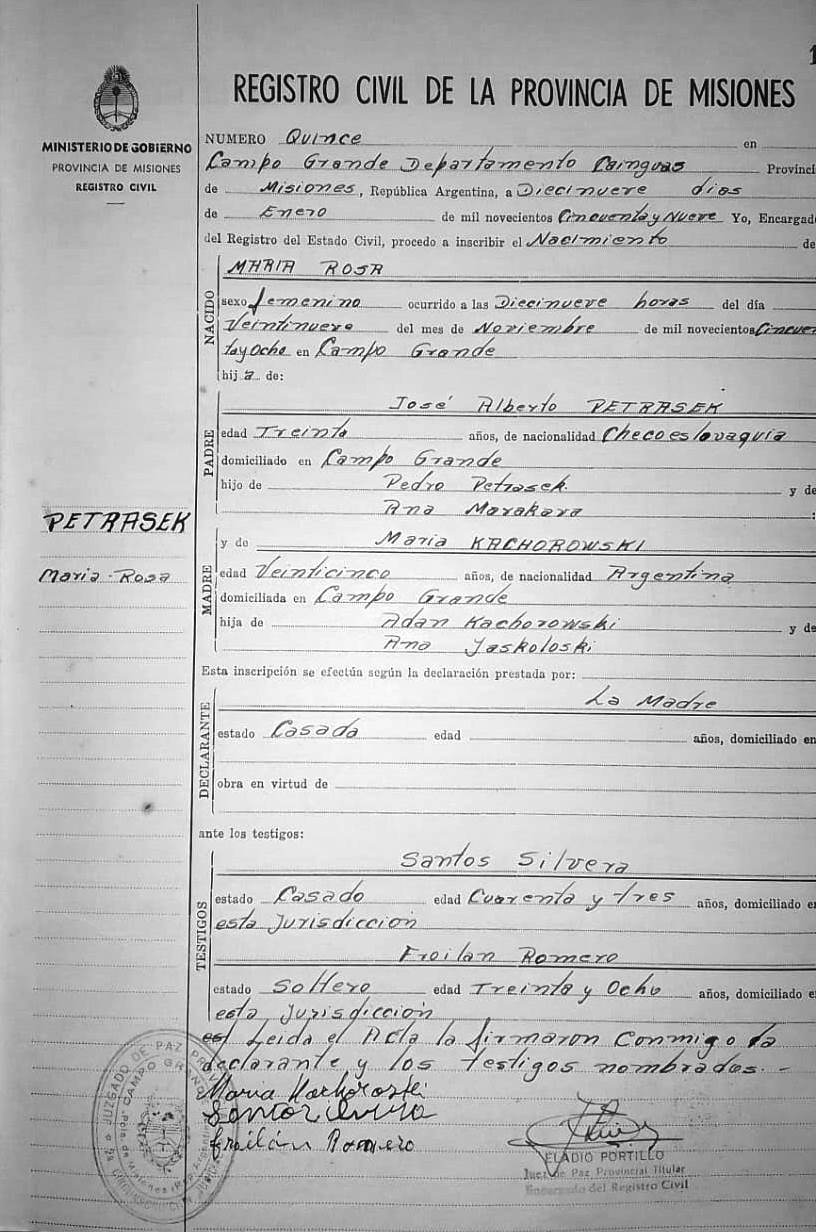 1
REGISTRO CIVIL DE LA PROVINCIA DE MISIONES
MINISTERIO DE GOBIERNO
PROVINCIA DE MISIONES
REGISTRO CIVIL
NUMERO Quince en
Campo Grande Departamento Cainguas Provinci
de Misiones, República Argentina, a Diecinueve dias
de Enero de mil novecientos Cincuenta y Nueve Yo, Encargad
del Registro del Estado Civil, procedo a inscribir el Nacimiento de
NACIDO
MARIA ROSA
sexo femenino ocurrido a las Diecinueve horas del día
Veintinueve del mes de Noviembre de mil novecientos Cincuen
tayOcho en Campo Grande
hija de:
PADRE
José Alberto PETRASEK
edad Treinta años, de nacionalidad Checoeslovaquia
domiciliado en Campo Grande
hijo de Pedro Petrasek y de
Ana Marakava :
PETRASEK
Maria-Rosa
MADRE
y de Maria KACHOROWSKI
edad Veinticinco años, de nacionalidad Argentina
domiciliada en Campo Grande
hija de Adan Kachorowski y de
Ana Jaskoloski
Esta inscripción se efectúa según la declaración prestada por:
DECLARANTE
La Madre
estado Casada edad años, domiciliado en
obra en virtud de
ante los testigos:
TESTIGOS
Santos Silvera
estado Casado edad Cuarenta y tres años, domiciliado en
esta Jurisdiccion
Froilan Romero
estado Soltero edad Treinta y Ocho años, domiciliado e
esta Jurisdiccion
Leida el Acta la firmaron Conmigo la
declarante y los testigos nombrados.-
Maria
Froilán Romero
JUZGADO DE PAZ
CAMPO GRANDE
ELADIO PORTILLO
Juez de Paz Provincial Titular
Encargado del Registro Civil